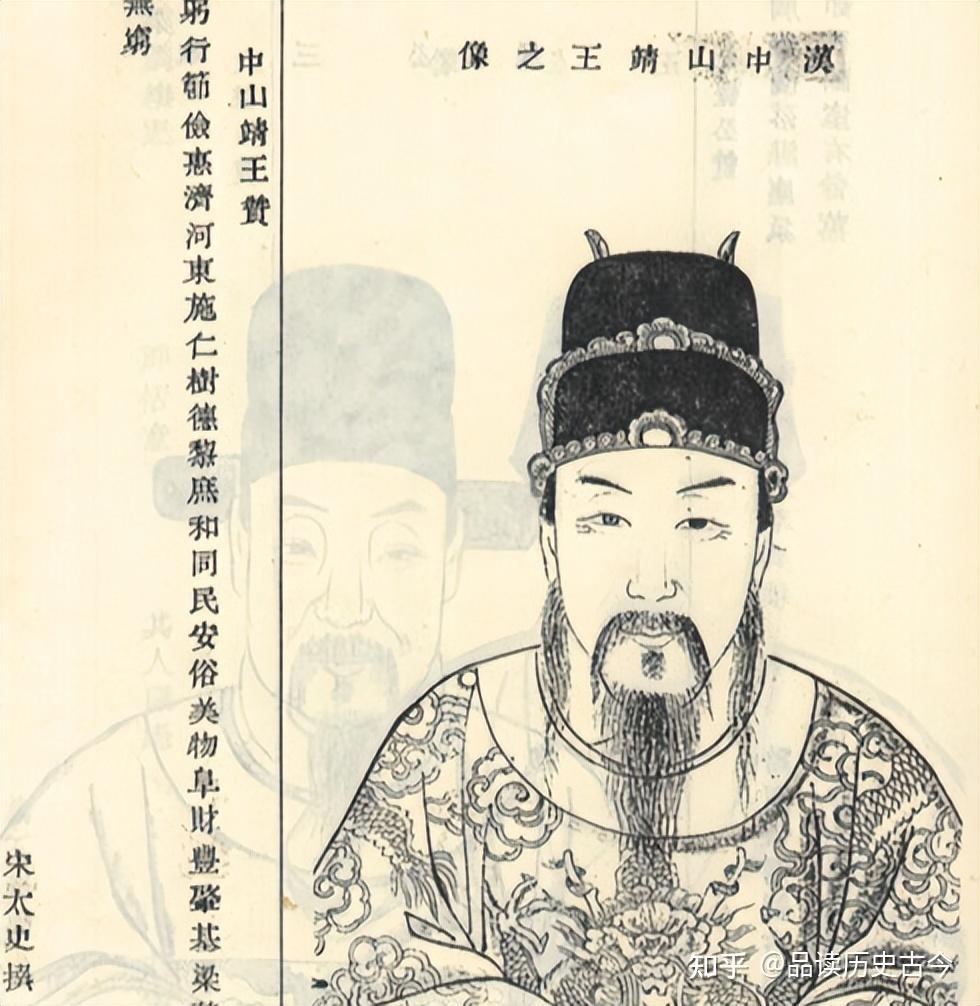 漢中山靖王之像
中山靖王贊
躬行節儉惠濟河東施仁樹德黎庶和同民安俗美物阜財豐肇基梁
無窮
宋太史撰
知乎 @品读历史古今